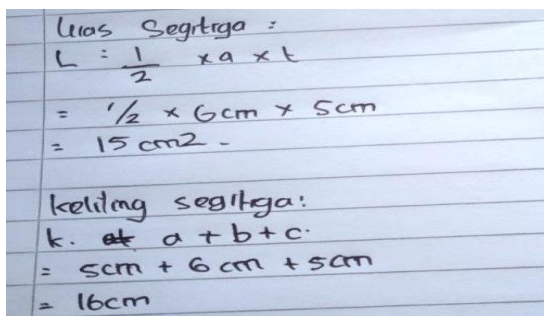 Luas Segitiga :
L = 1/2 x a x t
= 1/2 x 6cm x 5cm
= 15 cm2 -
Keliling segitiga:
k. a + b + c.
= 5cm + 6 cm + 5cm
= 16cm